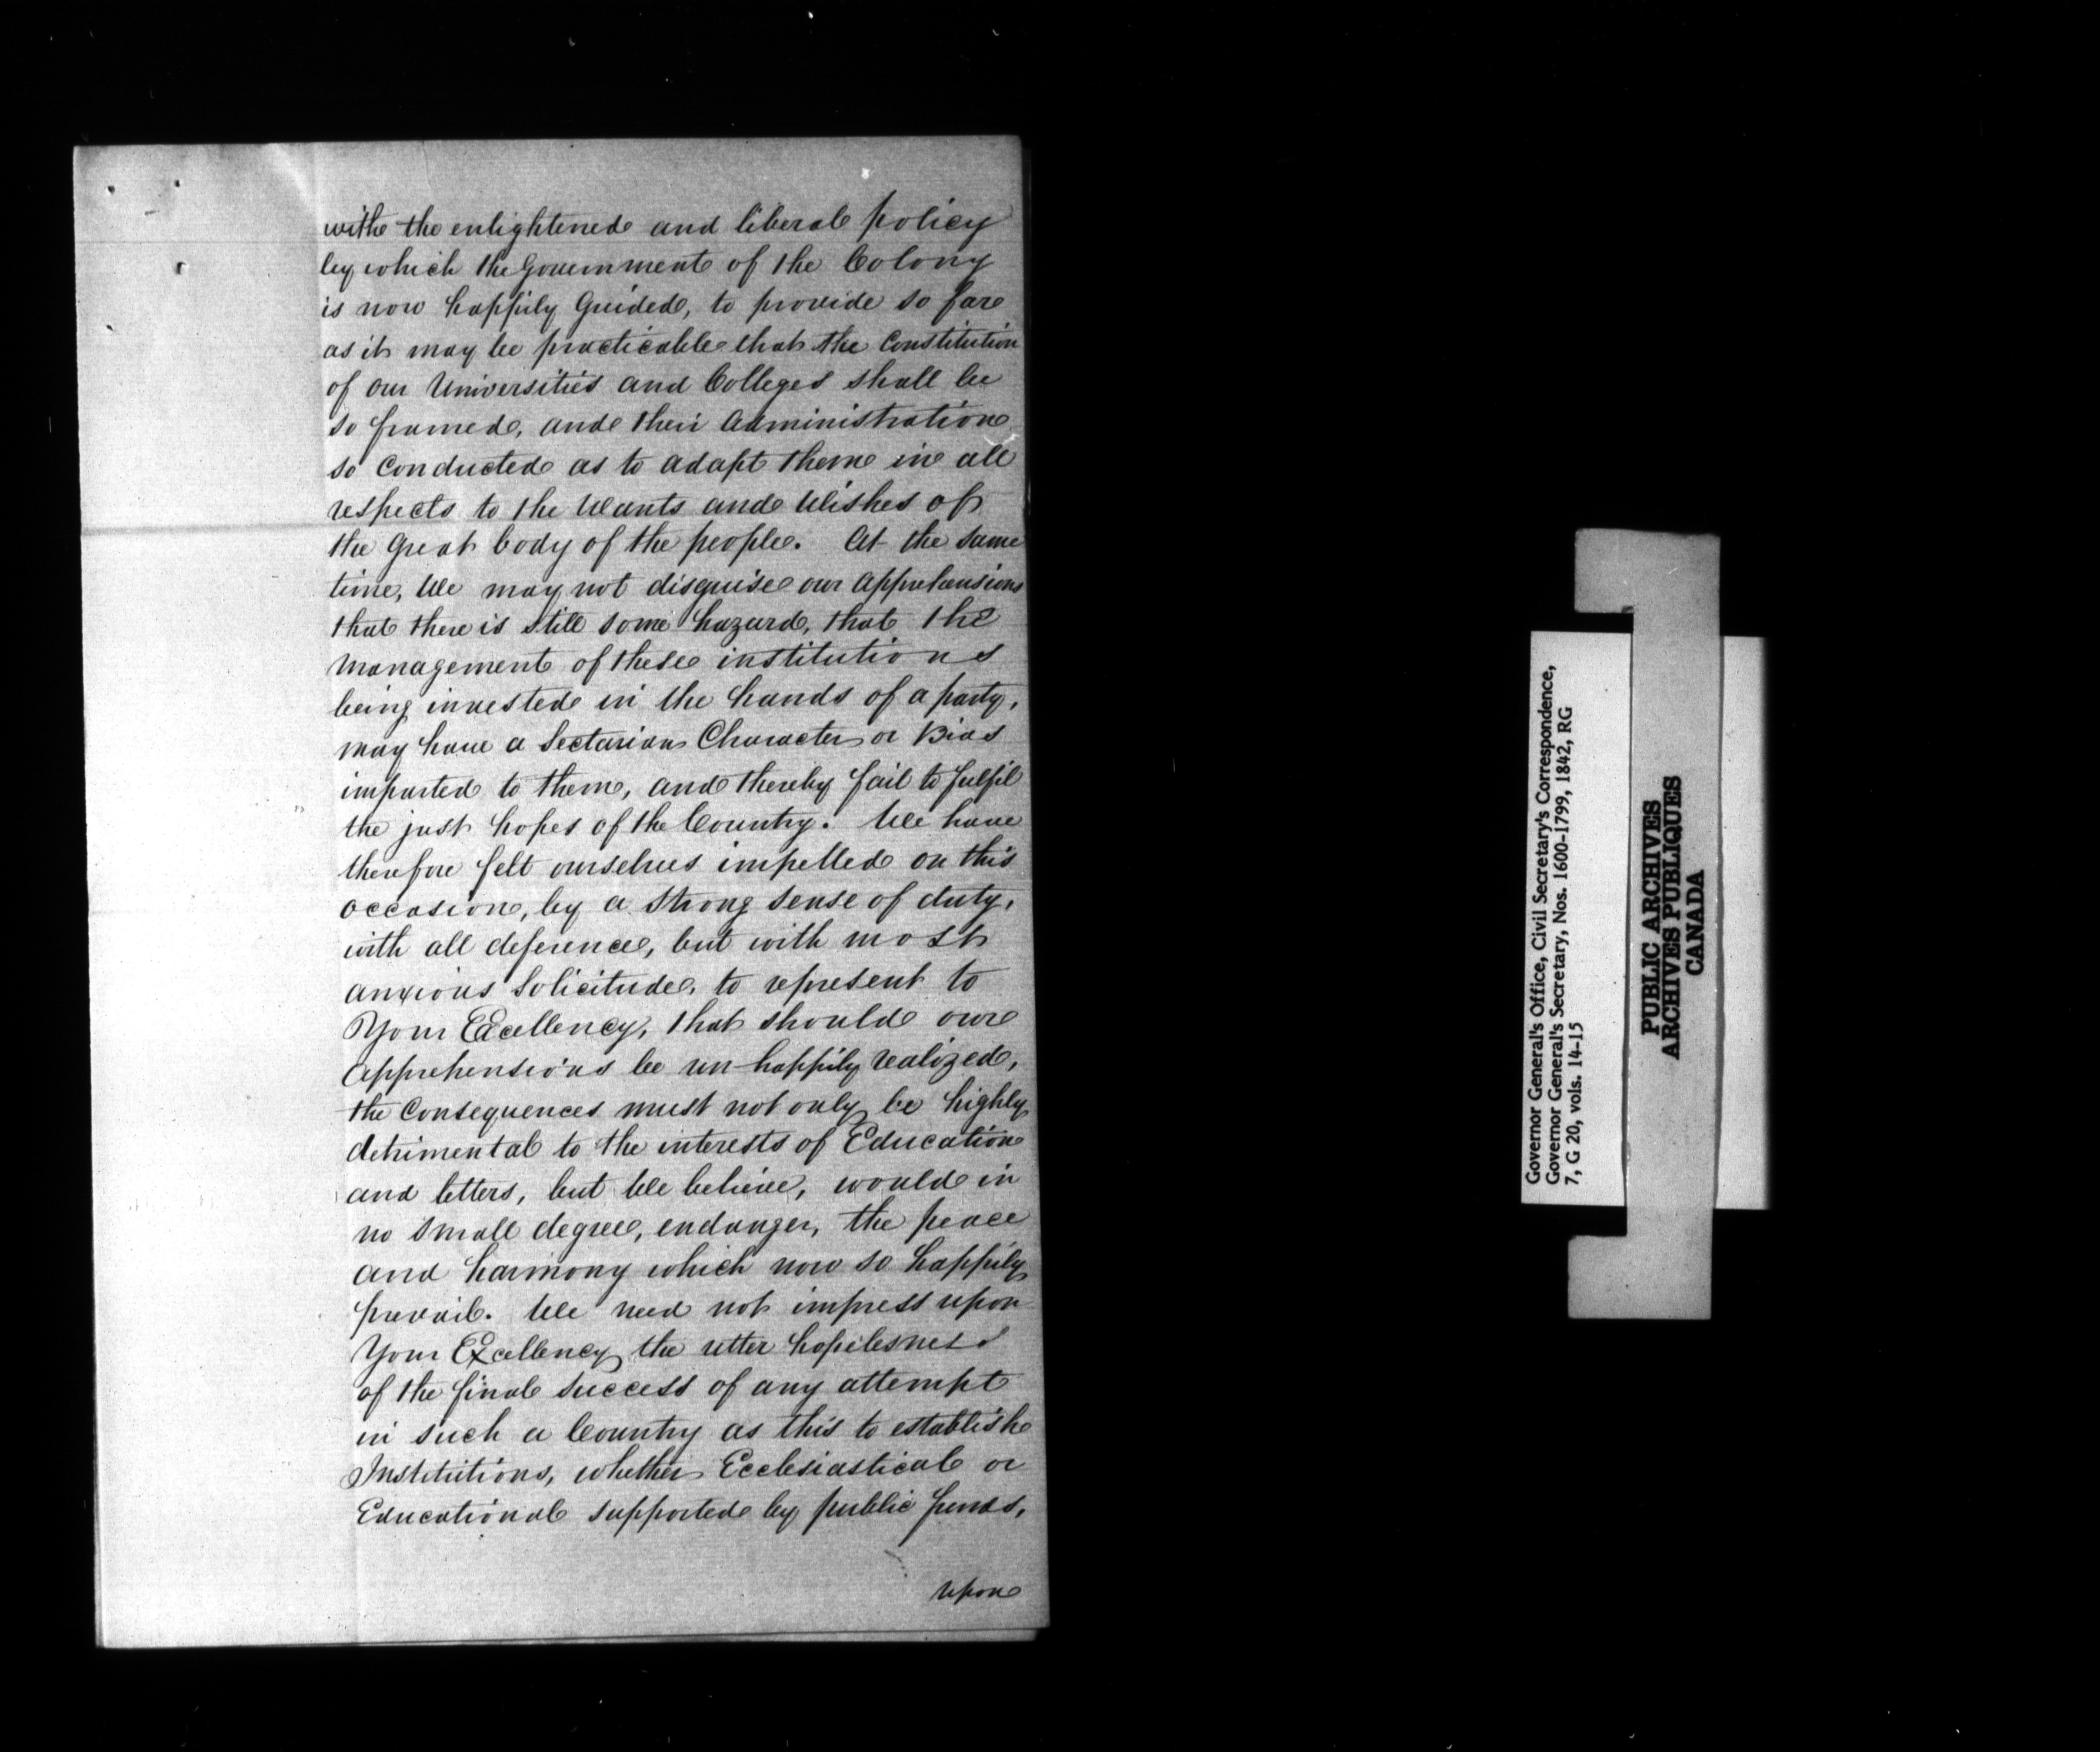 with the enlightened and liberal policy
by which the Government of the Colony
is now happily Guided, to provide so far
as it may be practicable that the Constitution
of our Universities and Colleges shall be
so framed, and their Administration
so Conducted as to adapt them in all
respects to the Wants and Wishes of
the Great body of the people. At the same
time, We may not disguise our apprehensions
that there is still some hazard, that the
management of these institutions
being invested in the hands of a party,
may have a Sectarian Character or Bias
imparted to them, and thereby fail to fulfil
the just hopes of the Country. We have
therefore felt ourselves impelled on this
occasion, by a strong sense of duty,
with all deference, but with most
anxious Solicitude, to represent to
Your Excellency, that should our
Apprehensions be un-happily realized,
the Consequences must not only be highly
detrimental to the interests of Education
and letters, but We believe, would in
no small degree, endanger, the peace
and harmony which now so happily
prevail. We need not impress upon
Your Excellency the utter hopelesness
of the final success of any attempt
in such a Country as this to establish
Institutions, whether Ecclesiastical or
Educational supported by public funds,
upon
Governor General's Office, Civil Secretary's Correspondence,
Governor General's Secretary, Nos. 1600-1799, 1842, RG
7, G 20, vols. 14-15
PUBLIC ARCHIVES
ARCHIVES PUBLIQUES
CANADA